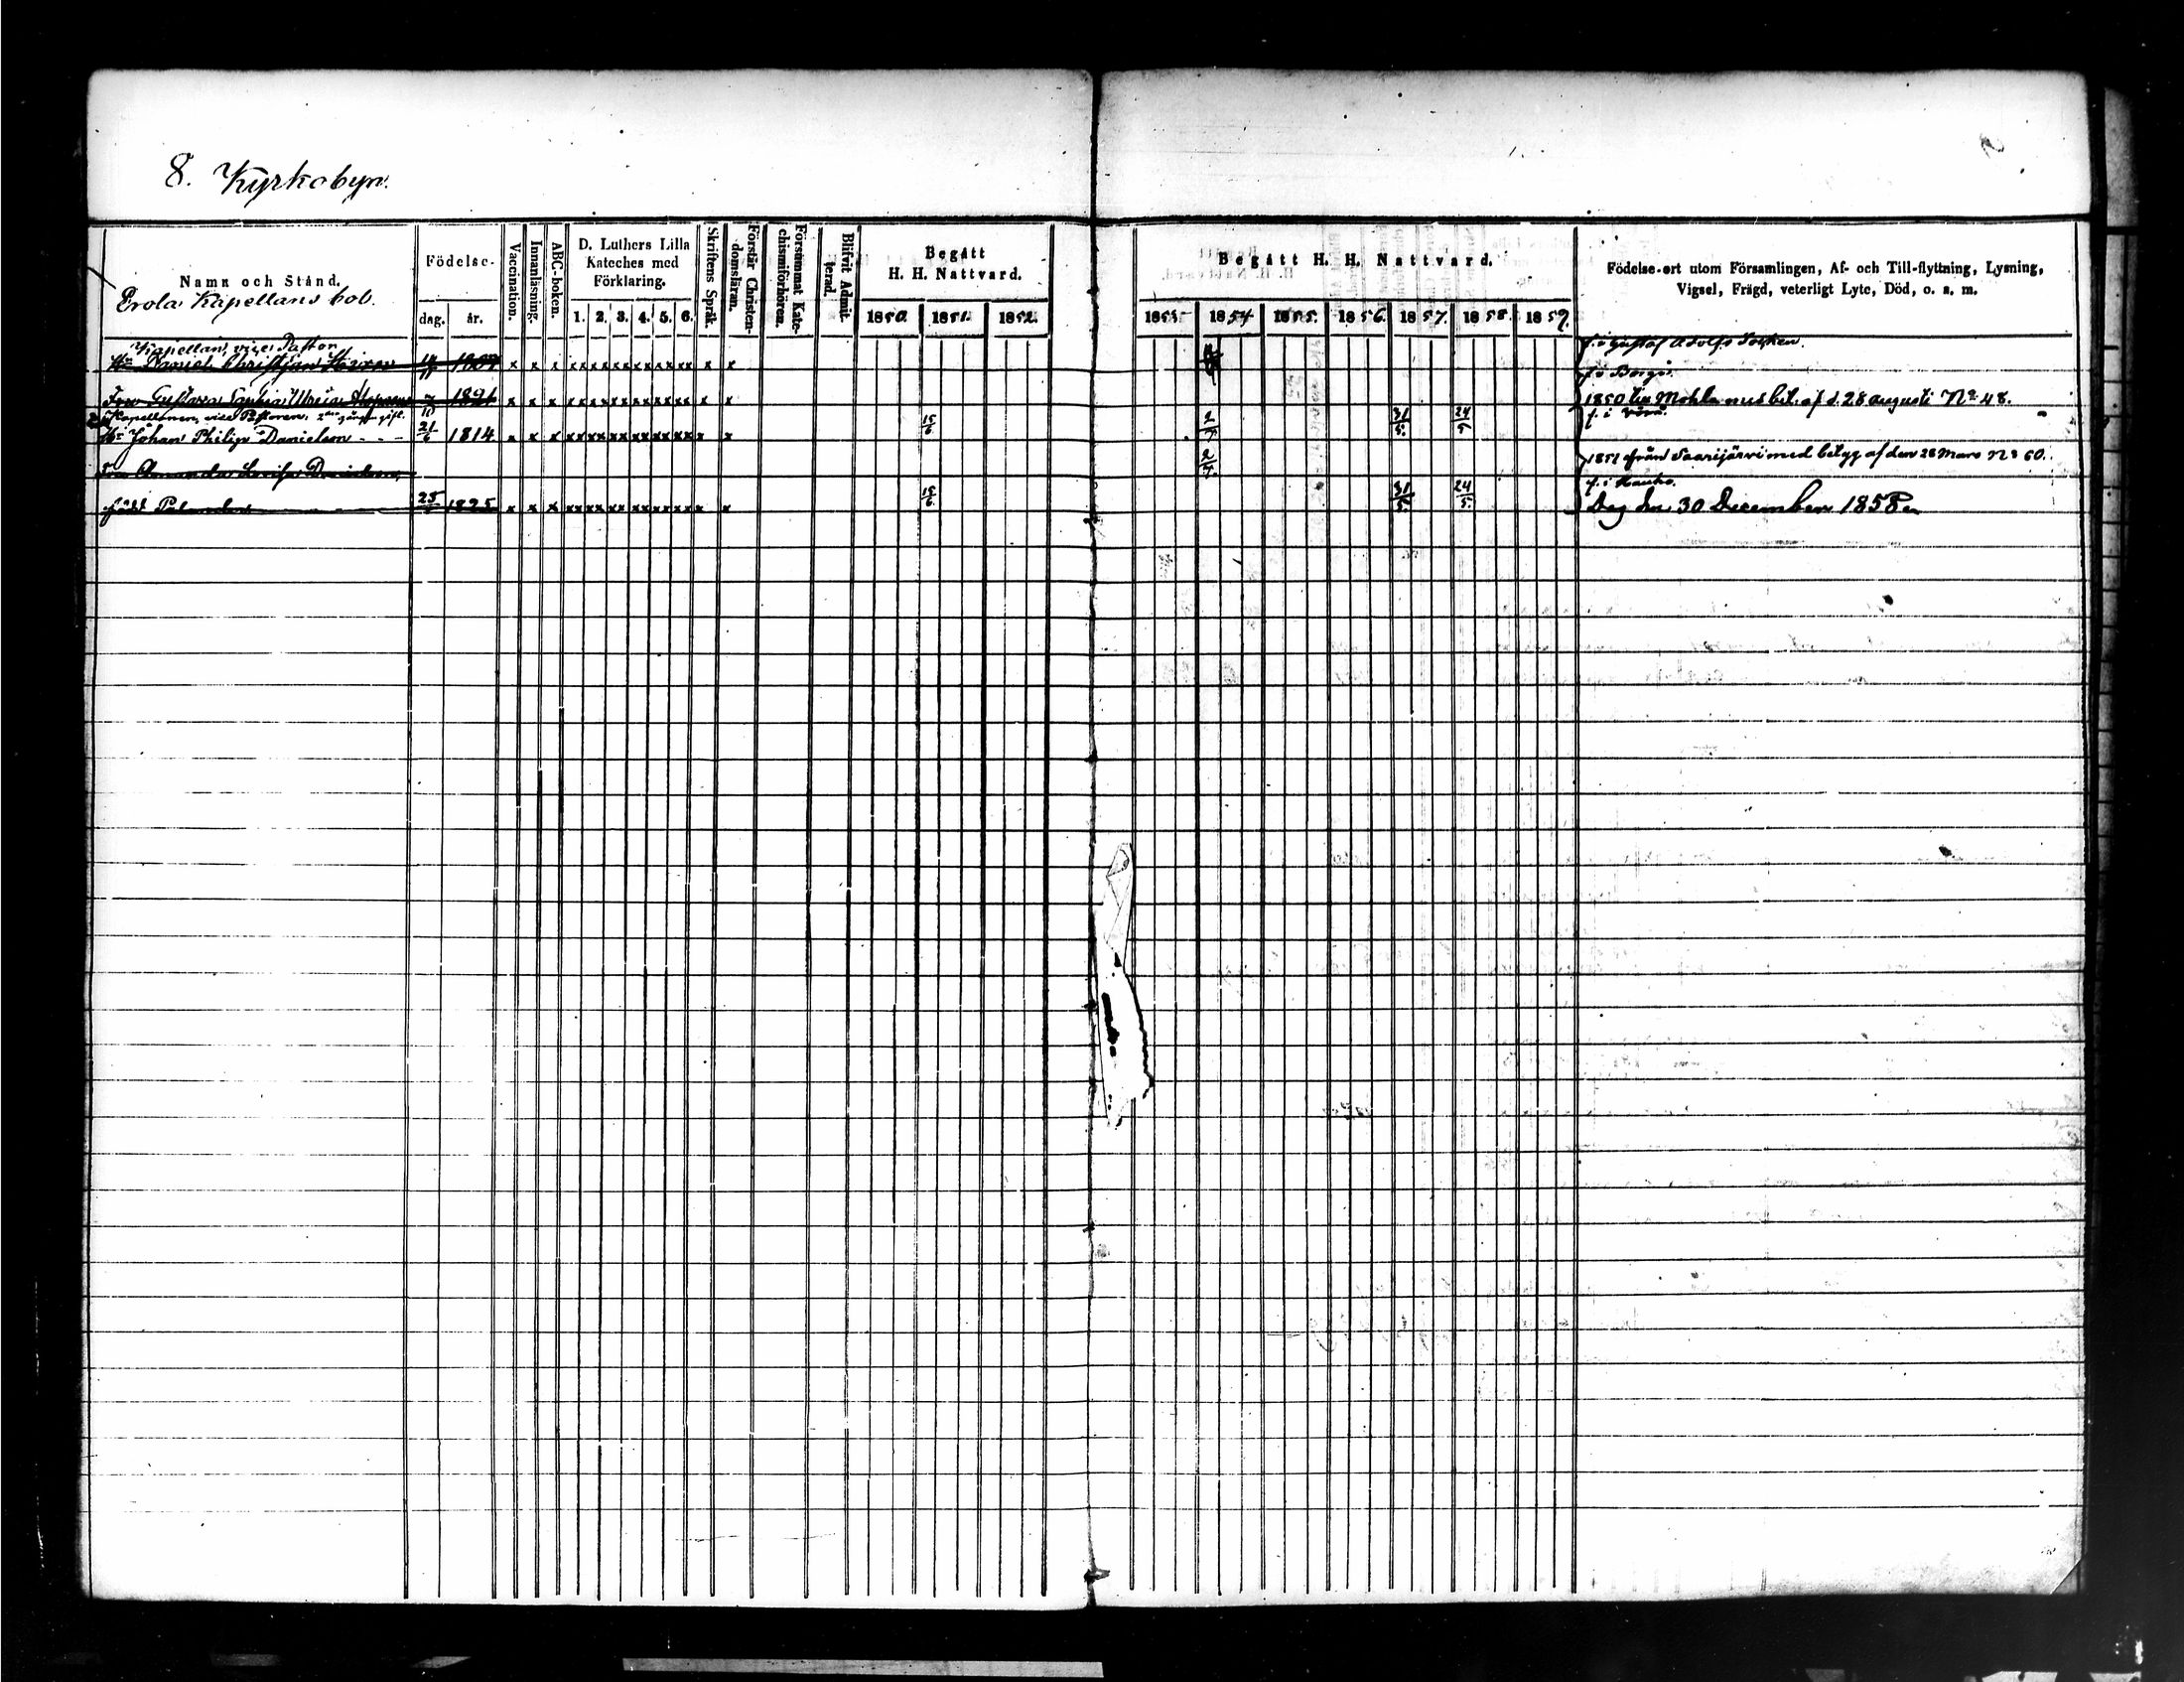 8. Kyrkobyn.
Namn och Stånd.
Erola Kapellans bol.
Födelse-
dag. år.
Vaccination.
Innanläsning.
ABC-boken.
D. Luthers Lilla
Kateches med
Förklaring.
1. 2. 3. 4. 5. 6.
Skriftens Språk.
Förstår Christen-
domsläran.
Försummat Kate-
chismiförhören.
Blifvit Admit-
terad.
Begått
H. H. Nattvard.
1850. 1851. 1852.
Begått H. H. Nattvard.
1853. 1854 1855. 1856. 1857. 1858. 1859.
Födelse-ort utom Församlingen, Af- och Till-flyttning, Lysning,
Vigsel, Frägd, veterligt Lyte, Död, o. s. m.
Kapellan, vice Pastor
Hr Daniel Christian x x x x x x x x x x x x x x x x x
f. i Gustaf Adolfs Socken.
f. i Borgå.
Fru Gustava x x x x x x x x x x x x x x x x x
1850 till Mohla med bet. af d. 28 augusti No 48.
Kapellanen, vice Pastoren. 2dra gången gift.
f. i Vörå.
Hr Johan Philip Danielson - - - 21/6 1814 x x x x x x x x x x x x x x x x x 15/6 2/5 31/5. 24/5
1851 ifrån Saarijärvi med betyg af den 28 Mars No 60.
Fru Amanda Lovisa Danielson, 2/5
f. i Hauho.
född 25 1825 x x x x x x x x x x x x x x x x x 15/6 31/5. 24/5.
Deg den 30 December 1858